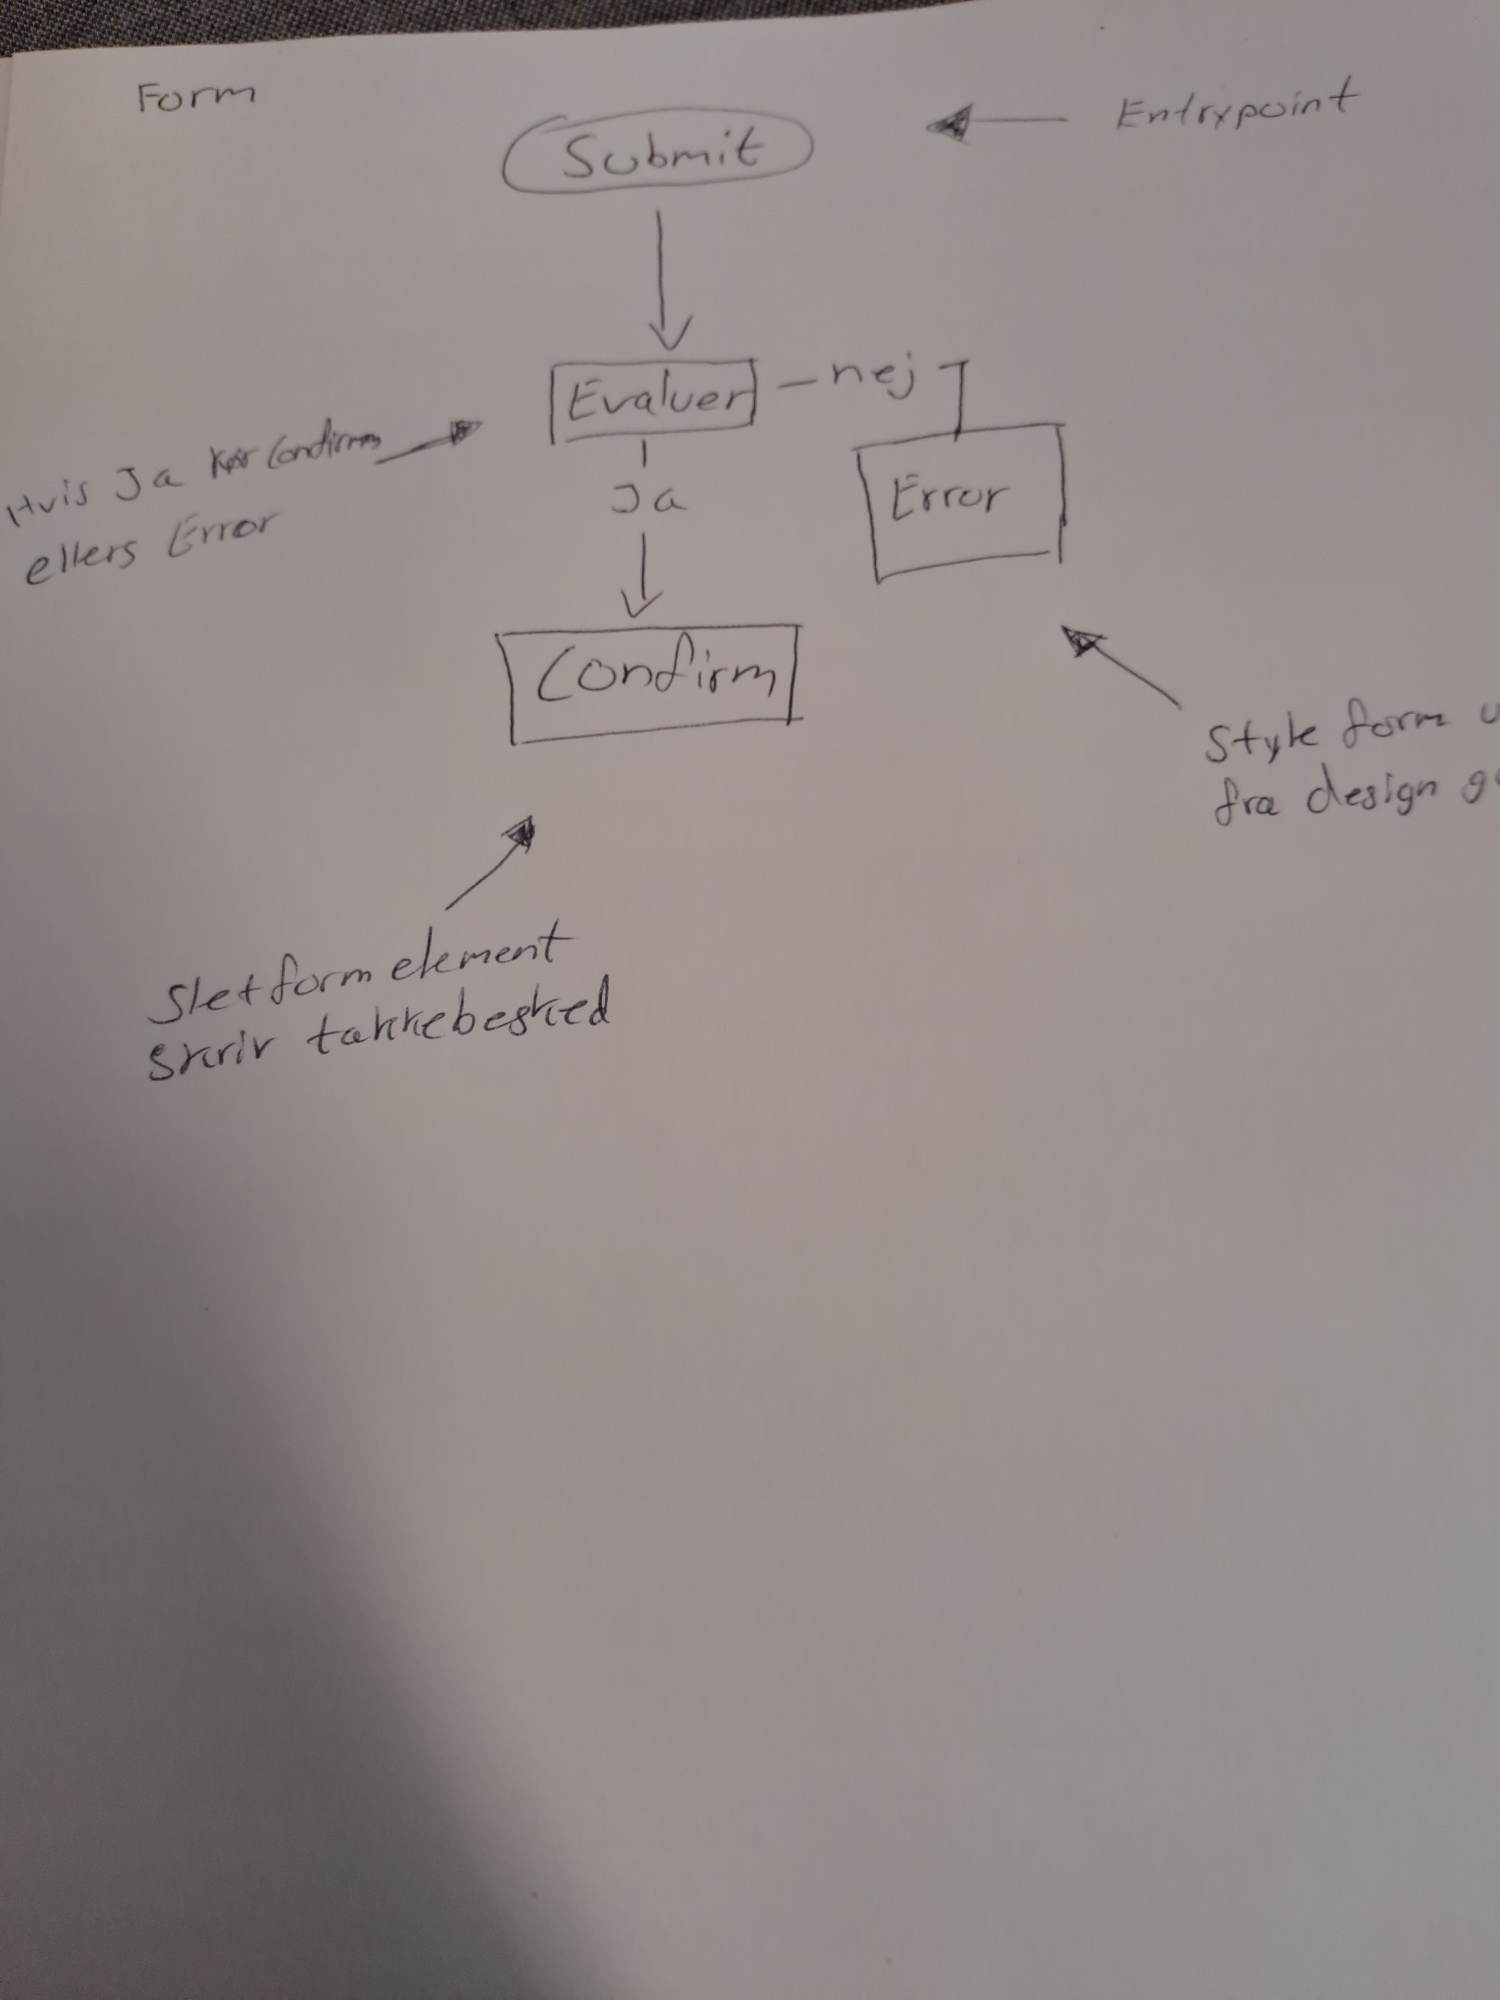 Form
Submit
Entrypoint
Evaluer
nej
Hvis Ja kør Confirm
ellers Error
Ja
Error
Confirm
Style form
fra design
Slet form element
Skriv takkebesked